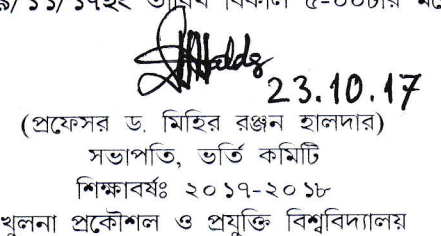 তারিখ বিকাল ৫-০০টার
23.10.17
(প্রফেসর ড. মিহির রঞ্জন হালদার)
সভাপতি, ভর্তি কমিটি
শিক্ষাবর্ষঃ ২০১৭-২০১৮
খুলনা প্রকৌশল ও প্রযুক্তি বিশ্ববিদ্যালয়